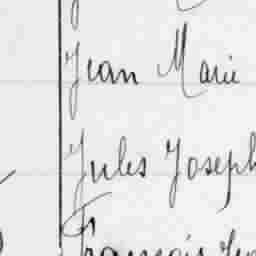 Jean Marie
Jules Joseph
François